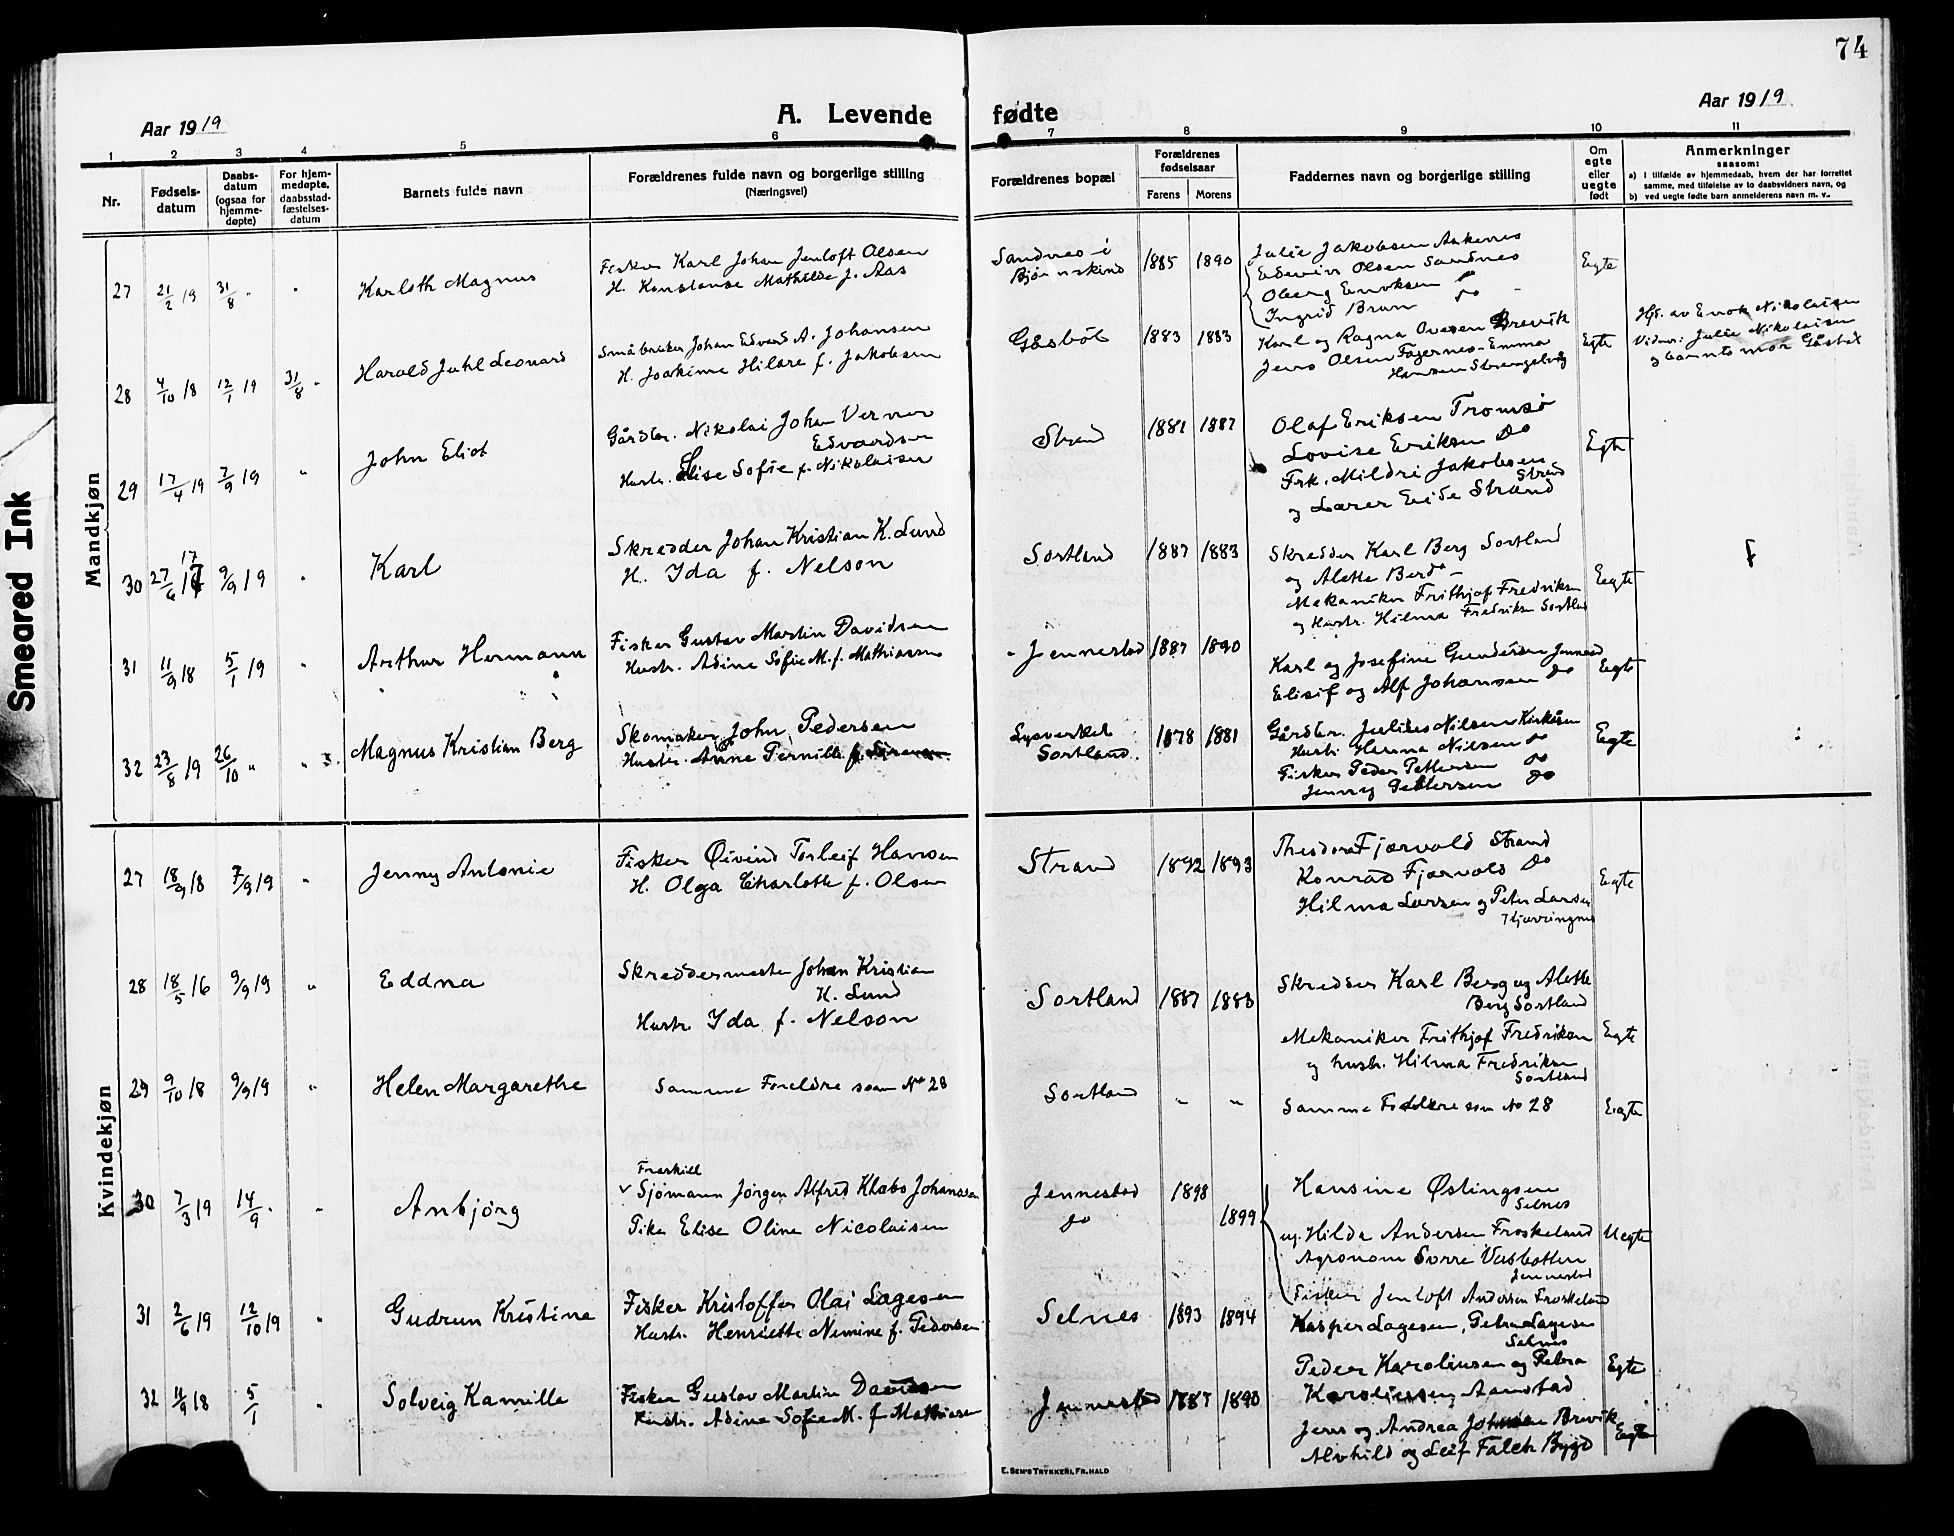 74
Aar 1919
A. Levende fødte
Aar 1919
1 2 3 4 5 6 7 8 9 10 11
Nr.
Fødsels-
datum
Daabs-
datum
(ogsaa for
hjemme-
døpte)
For hjem-
medøpte,
daabsstad-
fæstelses-
datum
Barnets fulde navn
Forældrenes fulde navn og borgerlige stilling
(Næringsvei)
Forældrenes bopæl
Forældrenes
fødselsaar
Farens Morens
Faddernes navn og borgerlige stilling
Om
egte
eller
uegte
født
Anmerkninger
saasom:
a) I tilfælde av hjemmedaab, hvem der har forrettet
samme, med tilføielse av to daabsvidners navn, og
b) ved uegte fødte barn anmelderens navn m. v..
Smeared Ink
Mandkjøn
27 21/2 19 31/8 " " Karloth Magnus
Fisker Karl Johan Jenloft Olsen
H. Konstanse Mathilde f. Aas
Sandnes i
Bjørnskind
1885 1890
Julie Jakobsen Aakernes
Edevin Olsen Sandnes
Oberg Enoksen do
Ingrid Brun do
Egte
28 4/10 18 12/1 19 31/8 " Harald Juhl Leonard
Småbruker Johan Edvard A. Johansen
H. Joakime Hilare f. Jakobsen
Gåsbøl
1883 1883
Karl og Ragna Ovesen Brevik
Jens Olsen Fagernes - Emma
Hansen Strengelvåg
Egte
Hjd. av Enok Nikolaisen
Vidner: Julie Nikolaisen
og barnets mor Gåsbøl
29 17/4 19 7/9 19 " John Eliot
Gårdbr. Nikolai Johan Verner
Edvardsen
Hustr. Elise Sofie f. Nikolaisen
Strand
1881 1887
Olaf Eriksen Tromsø
Lovise Eriksen do
Frk. Mildri Jakobsen
Strand
og Lærer Eide Strand
Egte
30 27/6 17 9/9 19 " Karl
Skredder Johan Kristian K. Lund
H. Ida f. Nelson
Sortland
1887 1883
Skredder Karl Berg Sortland
og Alette Berg " -
Mekaniker Frithjof Fredriksen
og Hustr. Hilma Fredriksen Sortland
Eegte
31 11/9 18 5/1 19 " Arthur Hermann
Fisker Gustav Martin Davidsen
Hustr. Adine Sofie M. f. Mathiassen
Jennestad
1887 1890
Karl og Josefine Gundersen Jennestad
Elisif og Alf Johansen do
Eegte
32 23/8 19 26/10 " " Magnus Kristian Berg
Skomaker John Pedersen
Hustr. Anne Pernille f.
Lysverket
Sortland
1878 1881
Gårdbr. Julius Nilsen Kirkåsen
Hustr. Hanna Nilsen do
Fisker Peder Pettersen do
Jenny Pettersen do
Eegte
Kvindekjøn
27 18/9 18 7/9 19 " Jenny Antonie
Fisker Øivind Torleif Hansen
H. Olga Charlotte f. Olsen
Strand
1892 1893
Theodora Fjærvold Strand
Konrad Fjærvold do
Hilma Larsen og Peter Larsen
Eegte
28 18/5 16 9/9 19 " Eddna
Skreddermester Johan Kristian
H. Lund
Hustr. Ida f. Nelson
Sortland
1887 1883
Skredder Karl Berg og Alette
Berg Sortland
Mekaniker Frithjof Fredriksen
og hustr. Hilma Fredriksen
Sortland
Eegte
29 9/10 18 9/9 19 " Helen Margarethe
Samme Foreldre som No 28
Sortland
" "
Samme Faddere som No 28
Eegte
30 7/3 19 14/9 " " Anbjörg
Fraskilt
Sjømann Jørgen Alfred Klæbo Johansen
Pike Elise Oline Nicolaisen
Jennestad
do
1898
1899
Hansine Østingsen
Selnes
ug. Hilda Andersen Froskeland
Agronom Sverre Vasbotten
Jennestad
Fisker Jenloft Andersen Froskeland
Uegte
31 2/6 19 12/10 19 " Gudrun Kristine
Fisker Kristoffer Olai Lagesen
Hustr. Henriette Nemine f. Pedersen
Selnes
1893 1894
Kasper Lagesen, Petra Lagesen
Selnes
Peder Karoliusen og Petra
Karoliussen Aanstad
Egte
32 11/9 18 5/1 " Solveig Kamilla
Fisker Gustav Martin Davidsen
Hustr. Adine Sofie M. f. Mathiasen
Jennestad
1887 1890
Jens og Andrea Johnsen Brevik
Alvhild og Leif Falch Bygd
Eegte
E. SEM'S TRYKKERI, FR.HALD